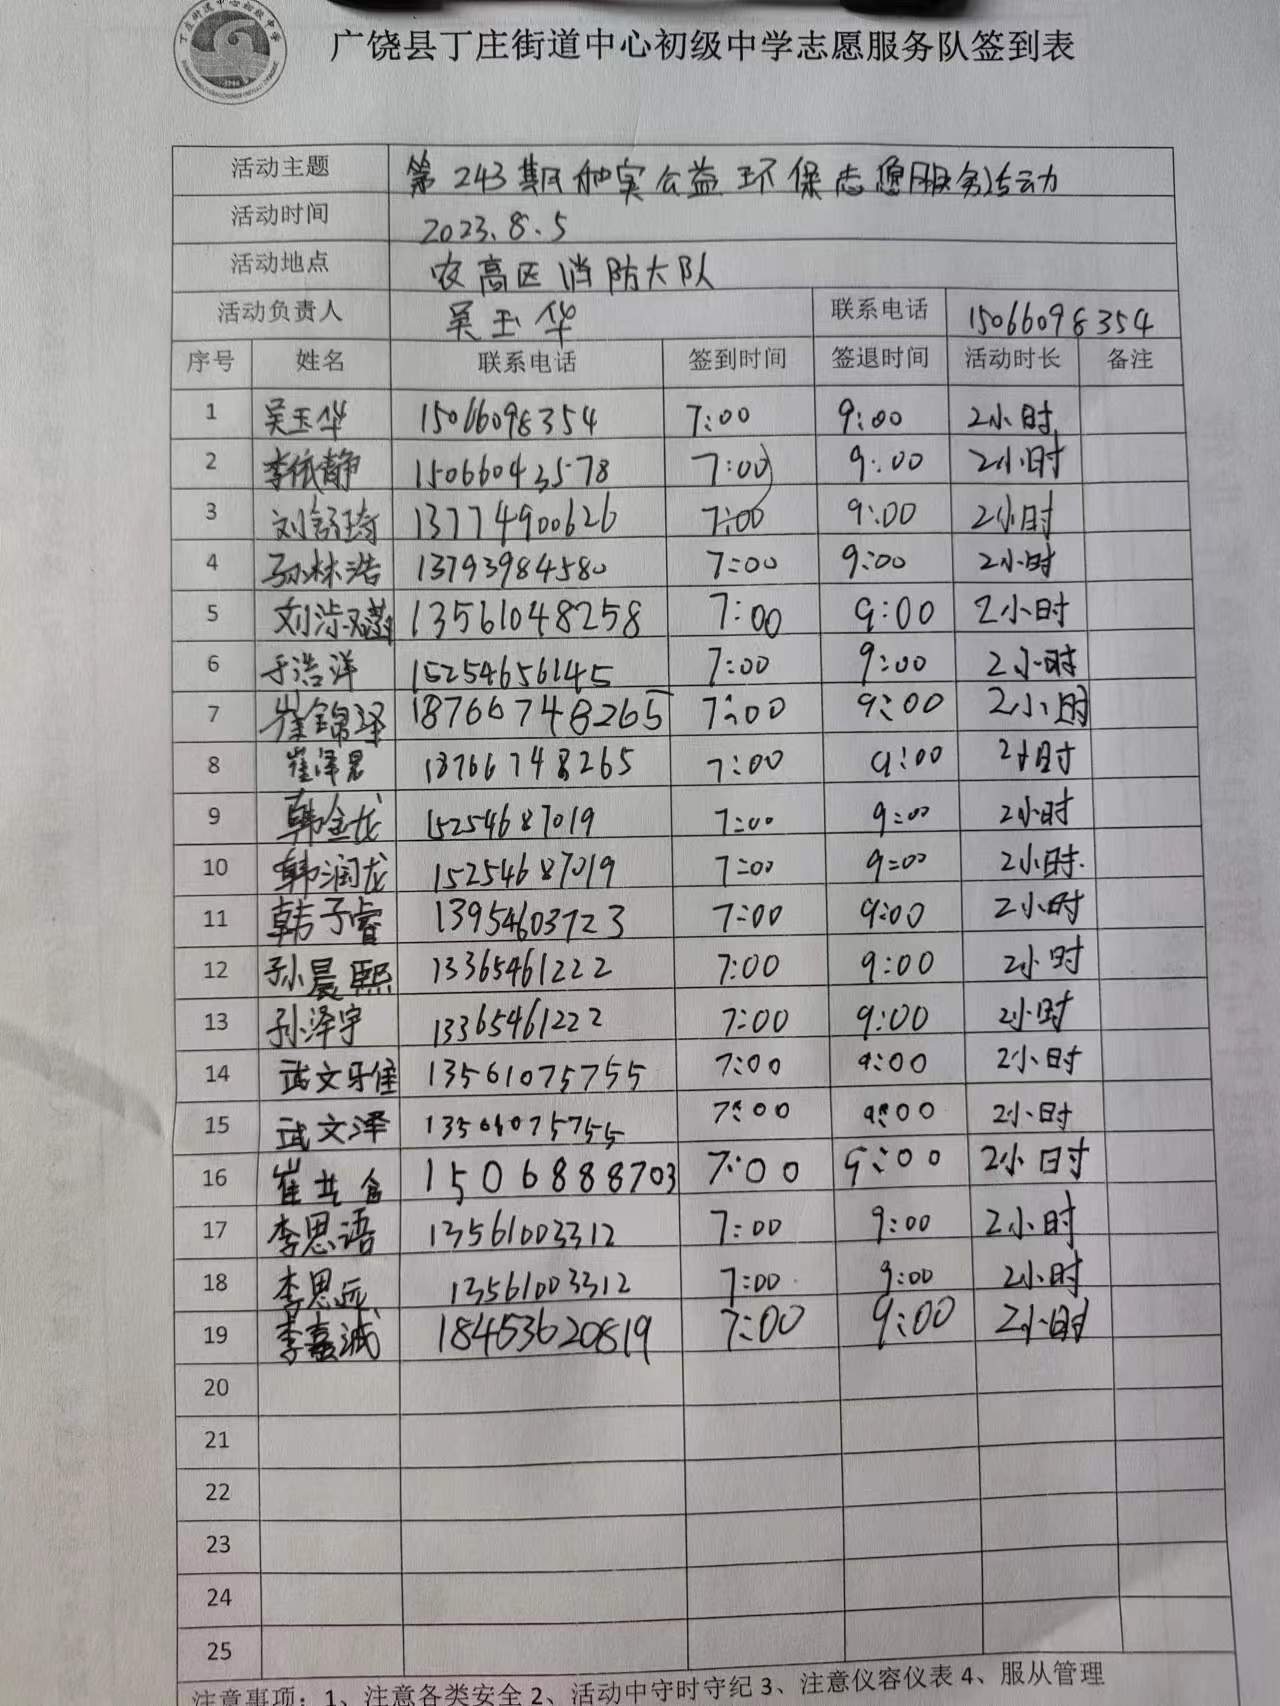 丁庄街道中心初级中学
广饶县丁庄街道中心初级中学志愿服务队签到表
活动主题 第243期 公益环保志愿服务活动
活动时间 2023.8.5
活动地点 农高区消防大队
活动负责人 吴玉华 联系电话 15066098354
序号 姓名 联系电话 签到时间 签退时间 活动时长 备注
1 吴玉华 15066098354 7:00 9:00 2小时
2 李依静 15066043578 7:00 9:00 2小时
3 刘舒琦 13774900626 7:00 9:00 2小时
4 孙林浩 13793984580 7:00 9:00 2小时
5 13561048258 7:00 9:00 2小时
6 于浩洋 15254656145 7:00 9:00 2小时
7 崔锦泽 18766748265 7:00 9:00 2小时
8 崔泽君 18766748265 7:00 9:00 2小时
9 韩金龙 15254687019 7:00 9:00 2小时
10 韩润龙 15254687019 7:00 9:00 2小时
11 韩子睿 13954603723 7:00 9:00 2小时
12 孙晨熙 13365461222 7:00 9:00 2小时
13 孙泽宇 13365461222 7:00 9:00 2小时
14 武文 13561075755 7:00 9:00 2小时
15 武文泽 13561075755 7:00 9:00 2小时
16 崔 15068888703 7:00 9:00 2小时
17 李思语 13561003312 7:00 9:00 2小时
18 李思远 13561003312 7:00 9:00 2小时
19 李嘉诚 18453620819 7:00 9:00 2小时
20
21
22
23
24
25
注意事项：1、注意各类安全 2、活动中守时守纪 3、注意仪容仪表 4、服从管理